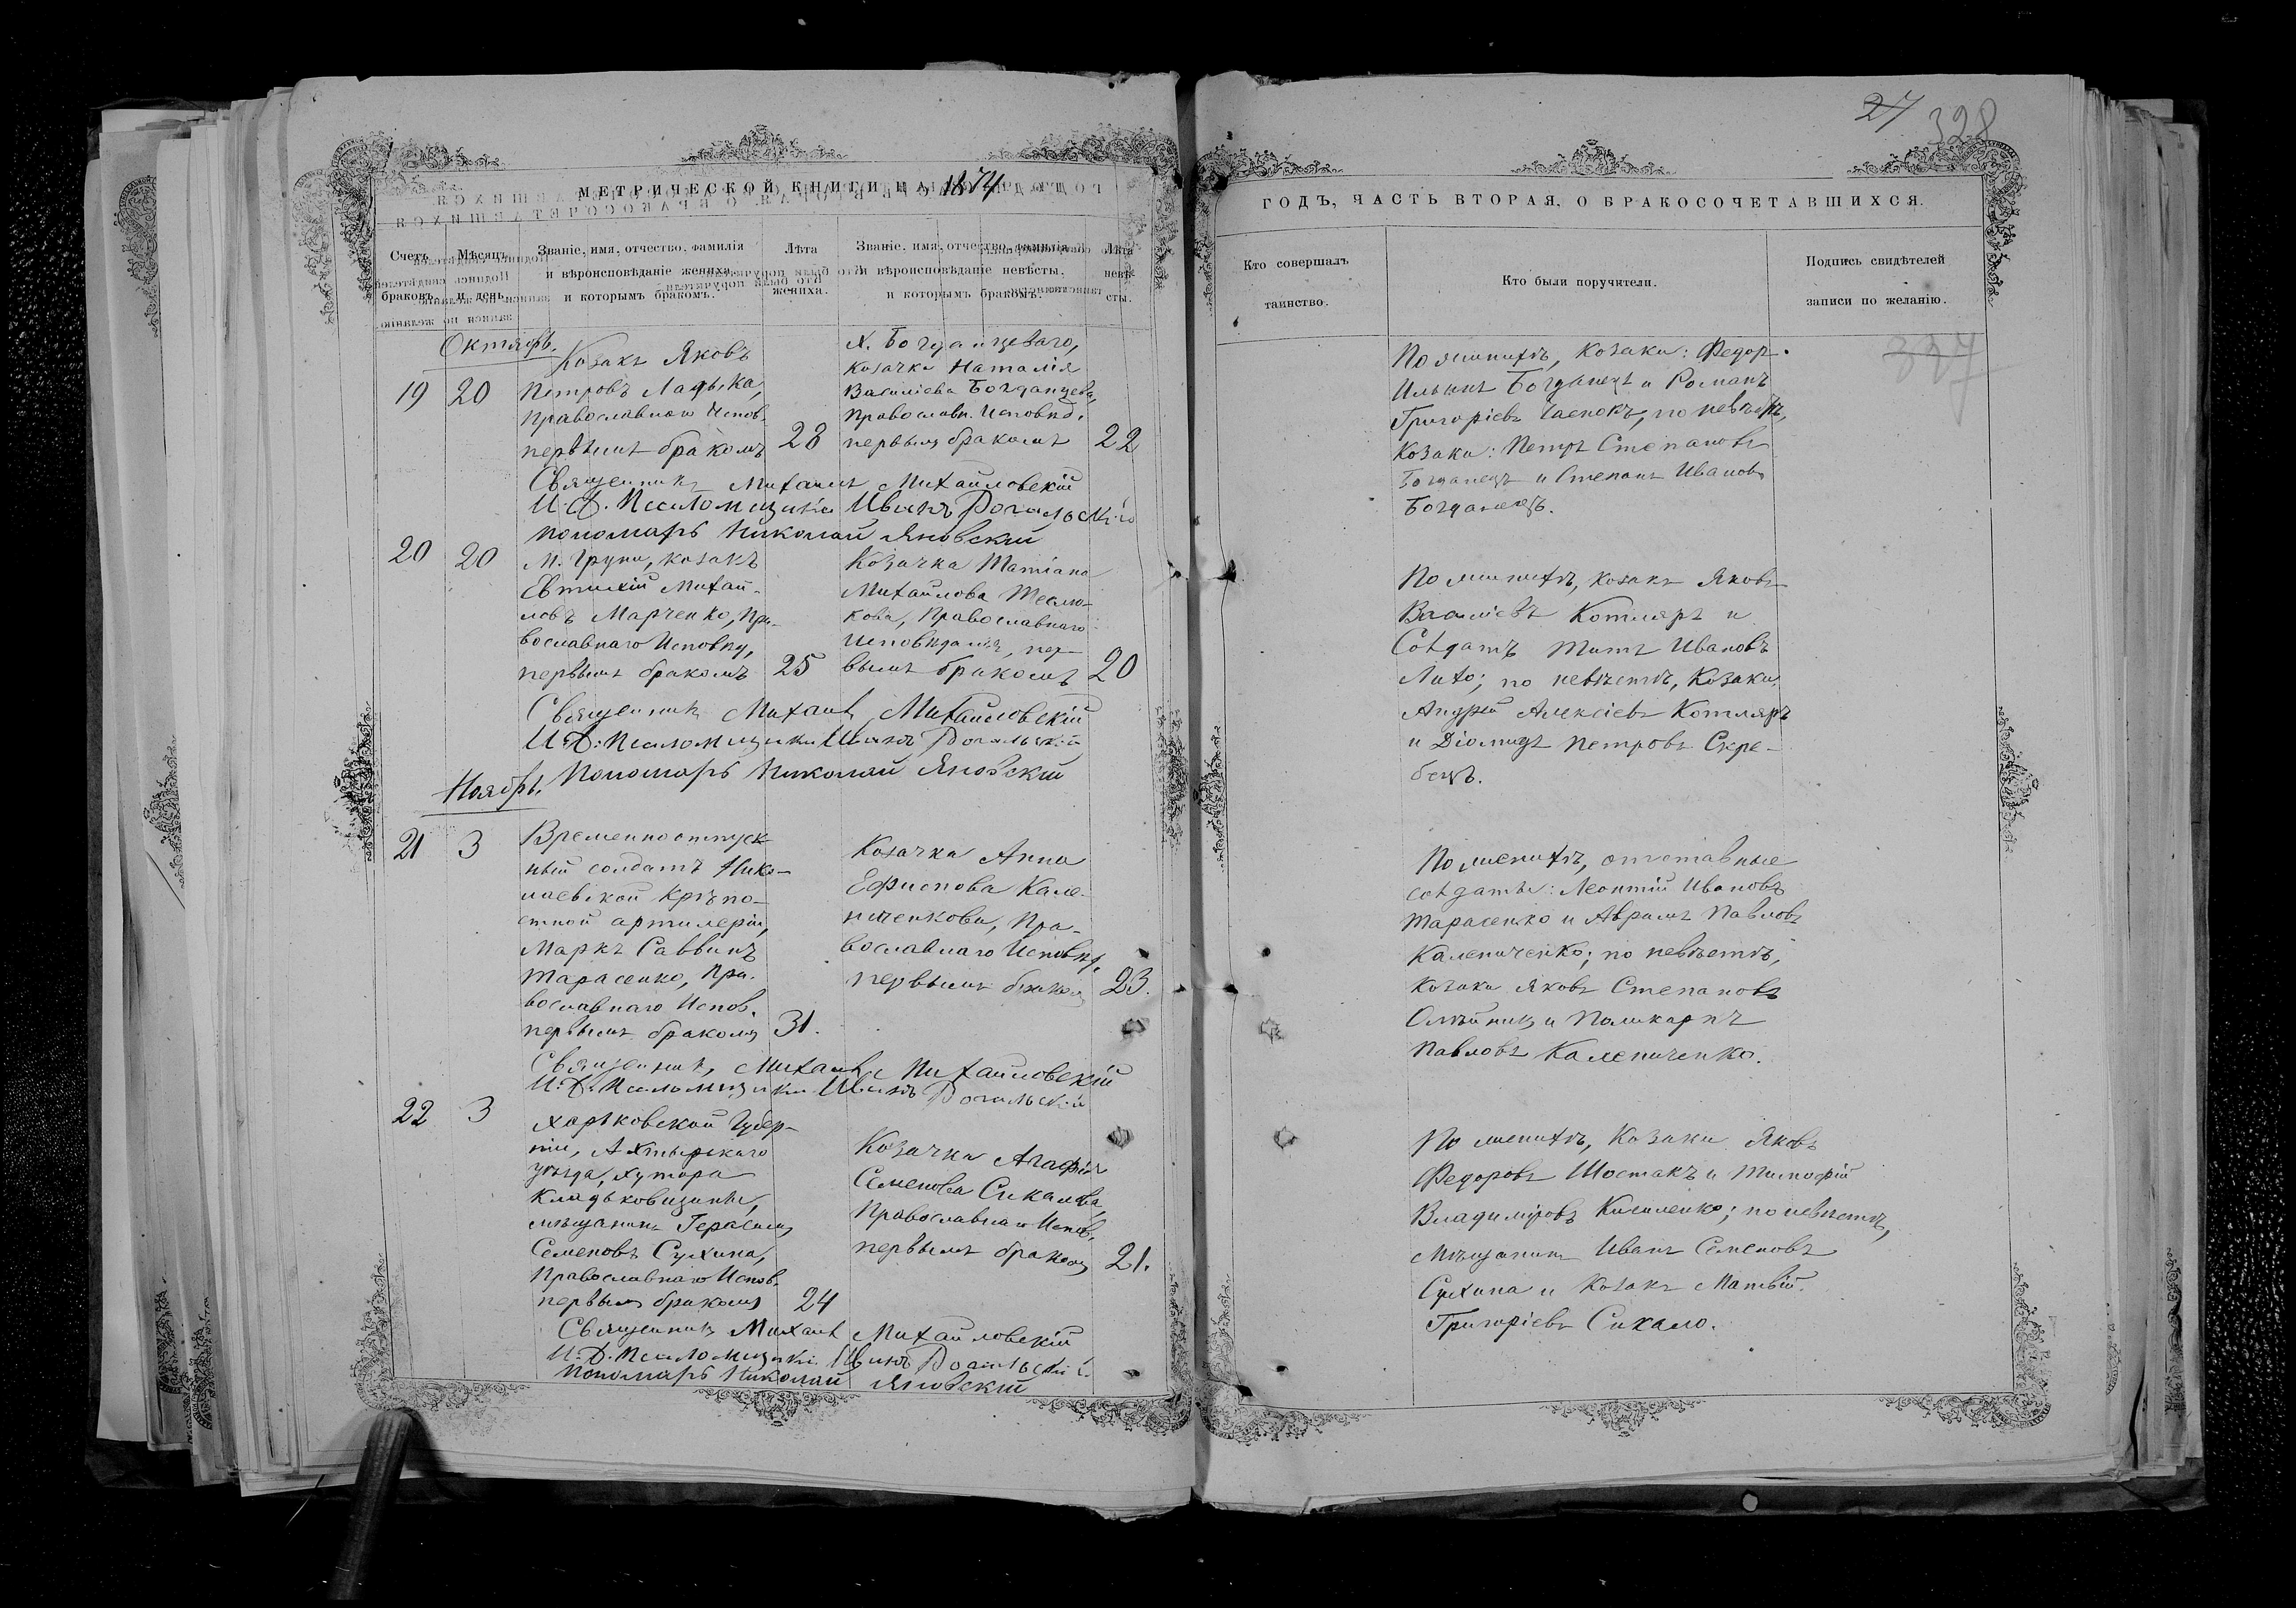 МЕТРИЧЕСКОЙ КНИГИ НА 1874
Счетъ браковъ.
Мѣсяцъ и день.
Званіе, имя, отчество, фамилія и вѣроисповѣданіе жениха и которымъ бракомъ.
Лѣта жениха.
Званіе, имя, отчество, фамилія и вѣроисповѣданіе невѣсты, и которымъ бракомъ.
Лѣта невѣсты.
Октябрь.
19 20
Козакъ Яковъ
Петровъ Ладыка,
Православнаго Испов.
первымъ бракомъ 28
Х. Богданцеваго,
Козачка Наталія
Василіева Богданцева,
Православн. Исповѣд.
первымъ бракомъ 22
Священникъ Михаилъ Михайловскій
И. Д. Псаломщика Иванъ Рогальскій
Пономарь Николай Яновскій
20 20
М. Груни, козакъ
Евтихій Михай-
ловъ Марченко, Пра-
вославнаго Исповѣд,
первымъ бракомъ 25
Козачка Татіана
Михайлова Теслю-
кова, Православнаго
Исповѣданія, пер-
вымъ бракомъ 20
Священникъ Михаилъ Михайловскій
И. Д. Псаломщика Иванъ Рогальскій
Пономарь Николай Яновскій
Ноябрь.
21 3
Временноотпуск-
ный солдатъ Нико-
лаевской Крѣпо-
стной артилеріи,
Маркъ Саввинъ
Тарасенко, Пра-
вославнаго Испов.
первымъ бракомъ 31.
Козачка Анна
Ефимова Кале-
ниченкова, Пра-
вославнаго Исповѣд.
первымъ бракомъ 23.
Священникъ Михаилъ Михайловскій
И. Д. Псаломщика Иванъ Рогальскій
22 3
Харьковской Губер-
ніи, Ахтырскаго
уѣзда, хутора
Кладьковщины,
мѣщанинъ Герасимъ
Семеновъ Сухина,
Православнаго Испов.
первымъ бракомъ 24
Козачка Агафія
Семенова Сикалова,
Православнаго Испов.
первымъ бракомъ 21.
Священникъ Михаилъ Михайловскій
И. Д. Псаломщика Иванъ Рогальскій
Пономарь Николай Яновскій
27
328
ГОДЪ, ЧАСТЬ ВТОРАЯ, О БРАКОСОЧЕТАВШИХСЯ.
Кто совершалъ таинство.
Кто были поручители.
Подпись свидѣтелей записи по желанію.
337
По женихѣ, Козаки: Федоръ
Ильинъ Богданецъ и Романъ
Григоріевъ, по невѣстѣ,
Козаки: Петръ Степановъ
Богданецъ и Степанъ Ивановъ
Богданецъ.
По женихѣ, козакъ Яковъ
Василіевъ Котляръ и
Солдатъ Титъ Ивановъ
Лихо; по невѣстѣ, Козаки
Андрей Алексіевъ Котляръ
и Діомидъ Петровъ Скре-
бецъ.
По женихѣ, отставные
солдаты: Леонтій Ивановъ
Тарасенко и Аврамъ Павловъ
Калениченко; по невѣстѣ,
Козаки Яковъ Степановъ
Олѣйникъ и Поликарпъ
Павловъ Калениченко.
По женихѣ, Козаки Яковъ
Федоровъ Шостакъ и Тимофій
Владиміровъ Кисиленко; по невѣстѣ,
Мѣщанинъ Иванъ Семеновъ
Сухина и Козакъ Матвій
Григоріевъ Сикало.